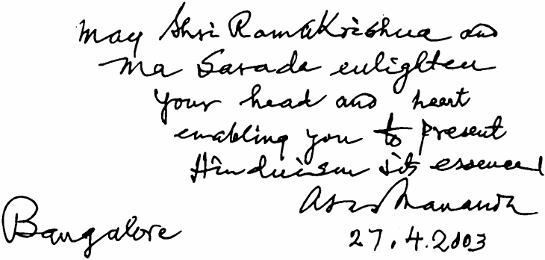 May Shri RamaKrishna and
Ma Sarada enlighten
your head and heart
enabling you to present
Hinduism its essence
Bangalore
27.4.2003